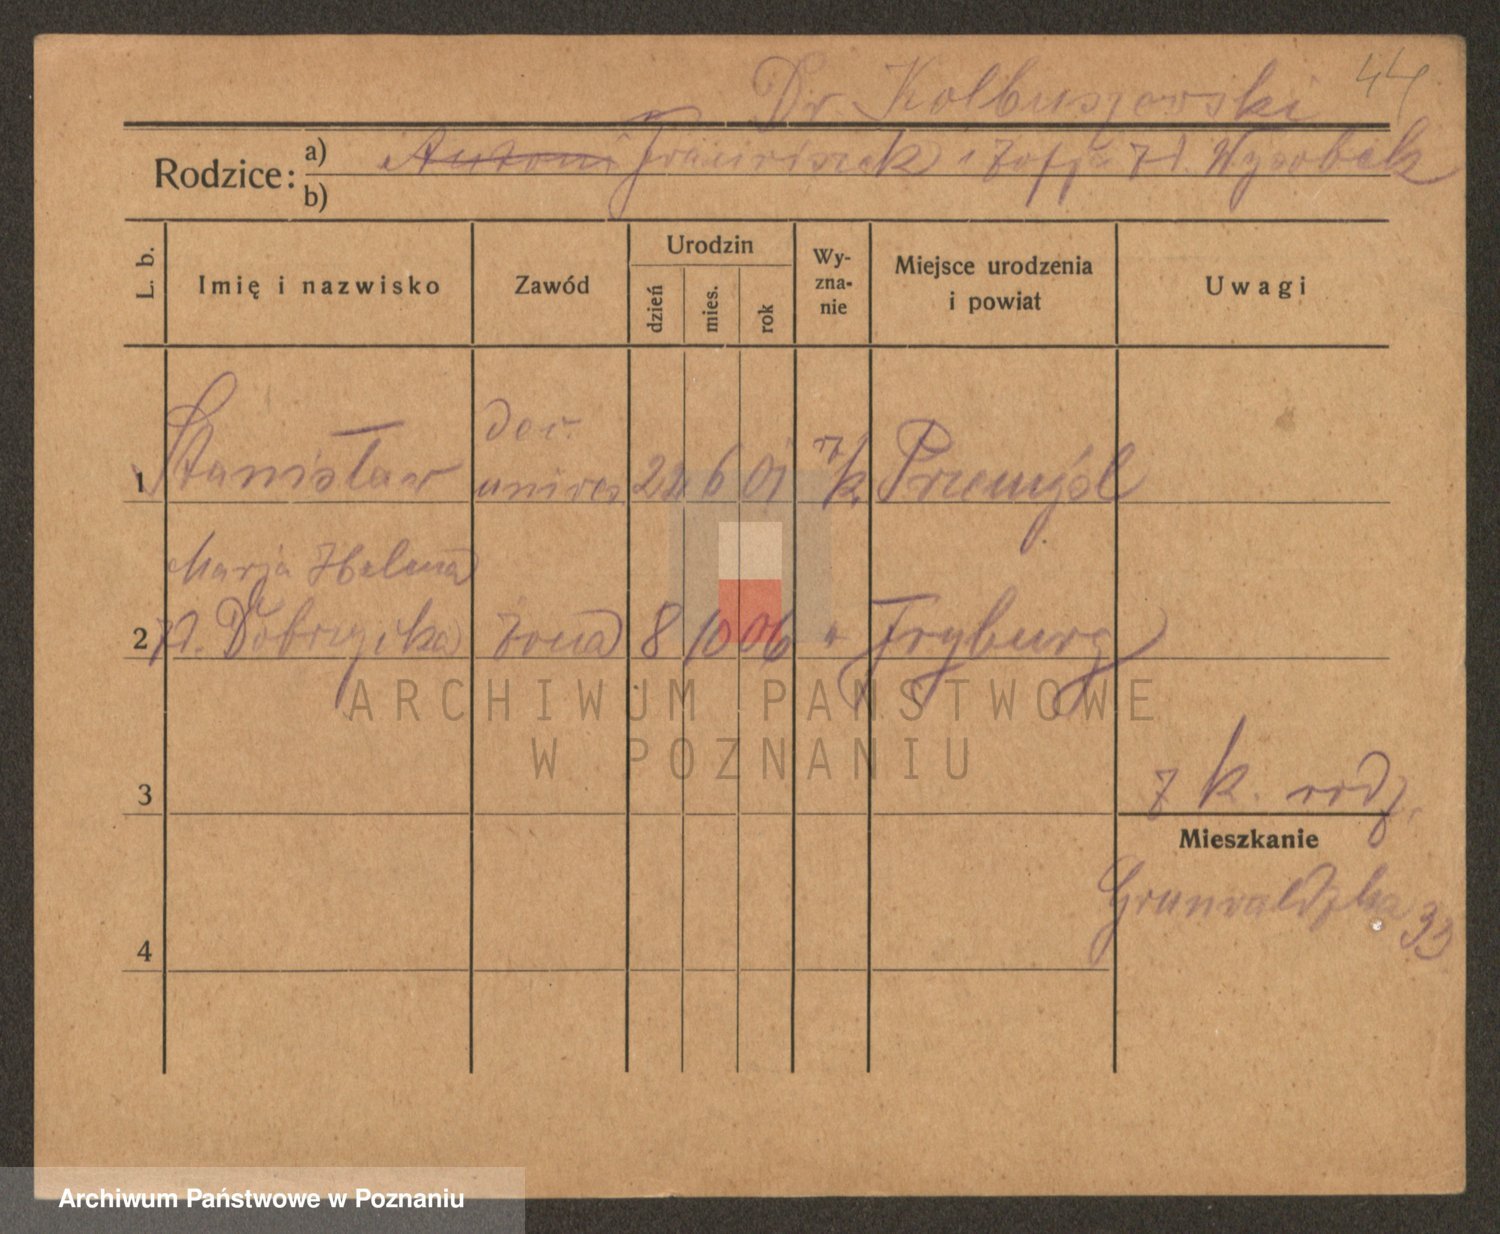 44
Dr. Kolbuszowski
Rodzice: a) Antoni Franciszek i Zofja zd. Wysobek
b)
L. b. Imię i nazwisko Zawód Urodzin dzień mies. rok Wy- zna- nie Miejsce urodzenia i powiat Uwagi
doc.
1 Stanisław univers. 22 6 01 rz k. Przemyśl
Marja Helena
2 zd. Dobrzycka żona 8 10 06 " Fryburg
ARCHIWUM PAŃSTWOWE
W POZNANIU
3 z k. rodz.
Mieszkanie
Grunwaldzka 33
4
Archiwum Państwowe w Poznaniu